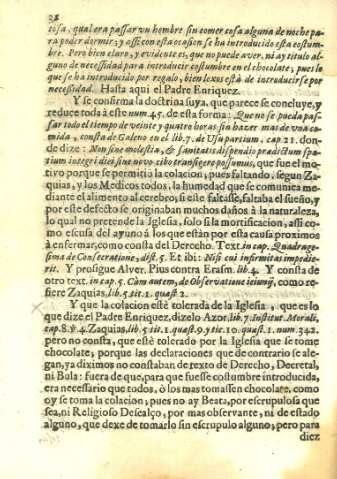 32
cosa, qual era passar vn hombre sin comer cosa alguna de noche pa-
ra poder dormir; y assi con esta ocasion se ha introducido esta costum-
bre. Pero bien claro, y evidente es, que no puede aver, ni ay titulo al-
guno de necessidad para introducir costumbre en el chocolate, pues lo
que se ha introducido por regalo, bien lexos està de introducirse por
necessidad. Hasta aqui el Padre Enriquez.
Y se confirma la doctrina suya, que parece se concluye, y
reduce toda à este num. 45. de esta forma: Que no se pueda pas-
sar todo el tiempo de veinte y quatro horas sin hazer mas de vna co-
mida, consta de Galeno en el lib. 7. de Vsu partium. cap. 21. don-
de dize: Non sine molestia, & sanitatis dispendio prædictum spa-
tium integri diei sine novo cibo transigere possumus, que fue el mo-
tivo porque se permitiò la colacion; pues faltando, segun Za-
quias, y los Medicos todos, la humedad que se comunica me-
diante el alimento al cerebro, si este faltasse, faltaba el sueño, y
por este defecto se originaban muchos daños à la naturaleza,
lo qual no pretende la Iglesia, solo si la mortificacion, assi co-
mo escusa del ayuno à los que estàn por esta causa proximos
à enfermar, como consta del Derecho. Text. in cap. Quadrage-
sima de Consecratione, dist. 5. Et ibi: Nisi cui infirmitas impedie-
rit. Y prosigue Alver. Pius contra Erasm. lib. 4. Y consta de
otro text. in cap. 5. Cùm autem, de Observatione ieiunij, como re-
fiere Zaquias, lib. 5. tit. 1. quæst. 2.
Y que la colacion estè tolerada de la Iglesia, que es lo
que dize el Padre Enriquez, dizelo Azor, lib. 7. Institut. Morali,
cap. 8. y 4. Zaquias, lib. 5. tit. 1. quæst. 9. y tit. 10. quæst. 1. num. 342.
pero no consta, que estè tolerado por la Iglesia que se tome
chocolate; porque las declaraciones que de contrario se ale-
gan, ya diximos no constaban de texto de Derecho, Decretal,
ni Bula: fuera de que, para que fuesse costumbre introducida,
era necessario que todos, ò los mas tomassen chocolate, como
oy se toma la colacion; pues no ay Beata, por escrupulosa que
sea, ni Religioso Descalço, por mas observante, ni de estado
alguno, que dexe de tomarlo sin escrupulo alguno; pero para
diez